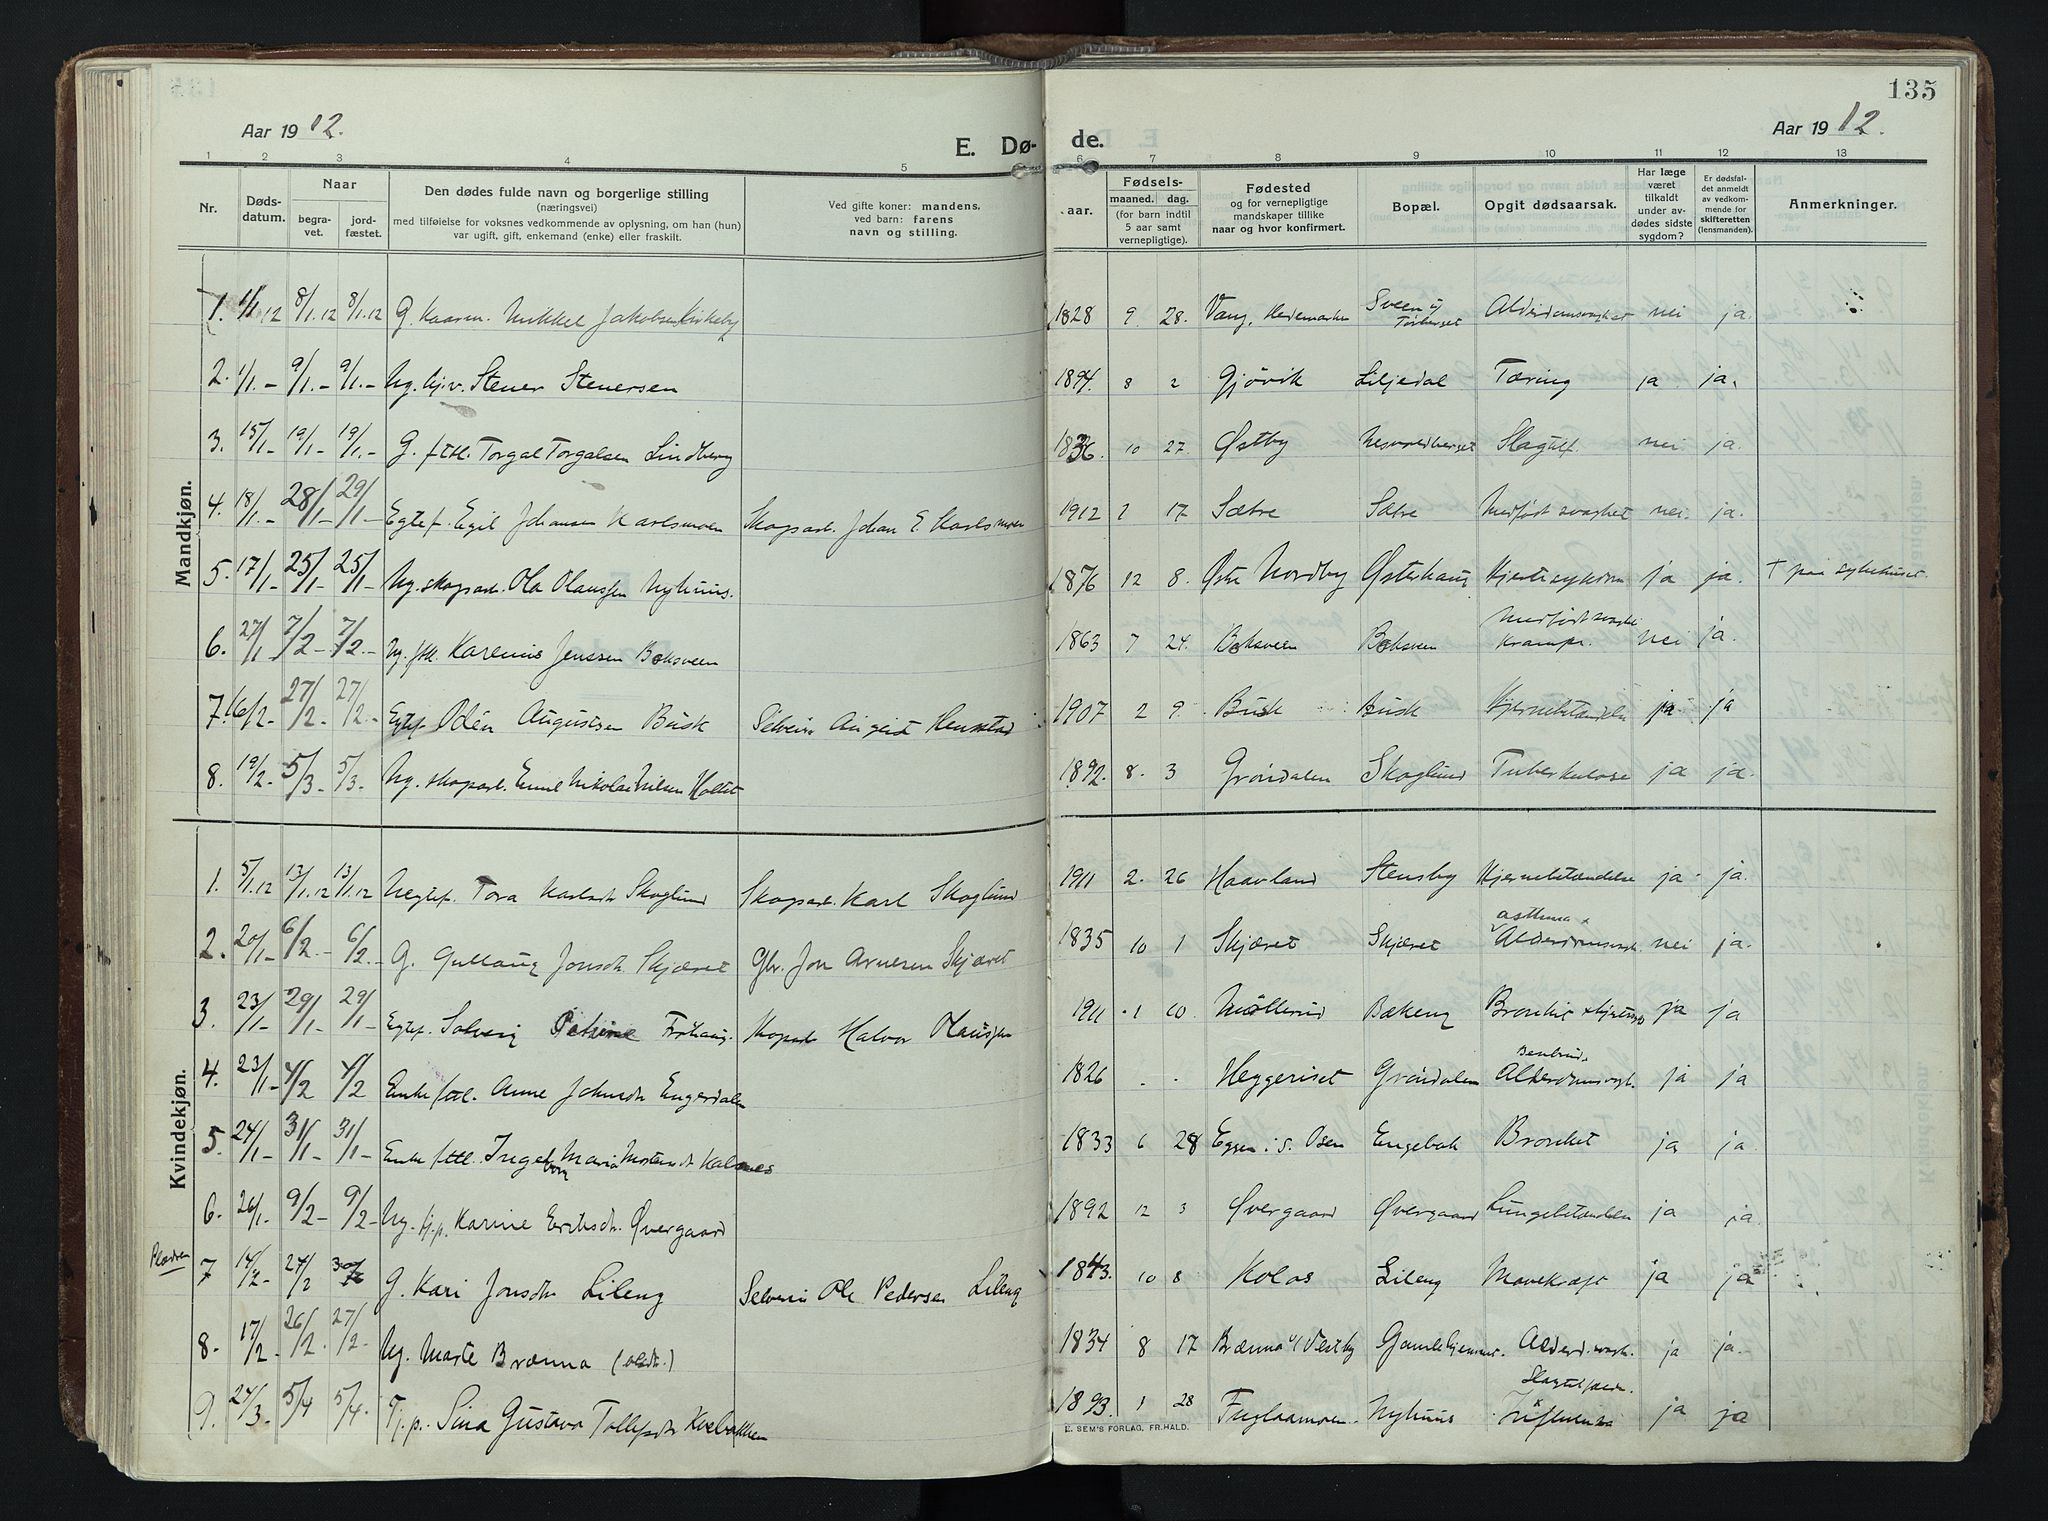 135
Aar 1912.
E. Dø-
de.
Aar 1912.
1 2 3 4 5 6 7 8 9 10 11 12 13
Nr.
Døds-
datum.
Naar
begra-
vet.
jord-
fæstet.
Den dødes fulde navn og borgerlige stilling
(næringsvei)
med tilføielse for voksnes vedkommende av oplysning, om han (hun)
var ugift, gift, enkemand (enke) eller fraskilt.
Ved gifte koner: mandens,
ved barn: farens
navn og stilling.
aar.
Fødsels-
maaned. dag.
(for barn indtil
5 aar samt
vernepligtige).
Fødested
og for vernepligtige
mandskaper tillike
naar og hvor konfirmert.
Bopæl.
Opgit dødsaarsak.
Har læge
været
tilkaldt
under av-
dødes sidste
sygdom?
Er dødsfal-
det anmeldt
av vedkom-
mende for
skifteretten
(lensmanden).
Anmerkninger.
Mandkjøn.
1. 1/1 12 8/1.12 8/1.12 G. Kaarm. Mikkel Jakobsen Kirkeby 1828 9. 28. Vang, Hedemarken Sveen i/ Torberget Alderdomssvakhet nei ja.
2. 1/1.- 9/1.- 9/1.- Ug. hj.v. Stener Stenersen 1894. 8 2 Gjövik Liljedal Tæring ja ja.
3. 15/1.- 19/1.- 19/1.- G. fttl. Torgal Torgalsen Lindberg 1836. 10 27. Østby Slagtilf. nei ja.
4. 18/1.- 28/1- 29/1- Egtef. Egil Johansen Karlsmoen Skogsarb. Johan E. Karlsmoen 1912 1 17 Sætre Sætre Medfødt svaghet nei. ja.
5. 17/1- 25/1- 25/1 Ug. skogsarb. Ola Olaussen Nyhuus. 1876 12 8. Østre Nordby Østerhaug Hjertesykdom ja ja. † paa sykehuset.
6. 27/1 7/2- 7/2.- Ug. fttl. Karenius Jenssen Boksveen 1863 7 24. Boksveen Boksveen Medfødt svaghe krampe. nei ja.
7. 16/2- 27/2- 27/2.- Egtef. Odén Augustsen Busk Selveier August Hemstad 1907 2 9. Busk Busk Hjernebetændelse ja ja
8. 19/2- 5/3- 5/3- Ug. skogsarb. Emil Nikolai Nilsen Holtet 1892. 8. 3 Gröndalen Skoglund Tuberkulose ja ja.
Kvindekjøn.
1. 5/1.12 13/1.12 13/1.12 Uegtef. Tora Karlsdt. Skoglund Skogsarb. Karl Skoglund 1911 2. 26 Haavland Stensby Hjernebetændelse ja. ja.
2. 20/1- 6/2.- 6/2.- G. Gullaug Jonsdt. Skjæret Gbr. Jon Arnesen Skjæret 1835 10 1 Skjæret Skjæret asthma + Alderdomssvagh. nei ja.
3. 23/1- 29/1- 29/1- Egtef. Solveig Petrine Frohaug. Skogsarb. Halvor Olaussen 1911 1 10 Möllerud Bækeng Bronkit ja ja
4. 23/1- 4/2 4/2 Enke fttl. Anne Johnsdt. Engerdalen 1826 - - Heggeriset Gröndalen Benbrud. Alderdomssvagh. ja ja
5. 24/1- 31/1- 31/1- Enke fttl. Ingeborg Maria Mortensdt. Kalnæs 1833 6 28 Eggen i S. Osen Engebak Bronkit ja ja
6. 26/1.- 9/2- 9/2- Ug. hj.p. Karine Eriksdt. Øvergaard 1892 12 3 Øvergaard Øvergaard Lungebetændelse ja ja.
7 14/2- 24/2 G. Kari Jonsdt. Lileng Selveier Ole Pedersen Lileng 1843. 10 8 Kolos Lileng Mavekræft ja ja
8. 17/2 26/2. 27/2. Ug. Marte Brænna (oldt.) 1834 8 17 Brænna i/ Vestby Gamlehjemmet. Alderd. svagh. ja ja.
9. 24/3 5/4 5/4. Tj.p. Sina Gustava Tollefsdt. Kvebakken 1893. 1 28 Fuglaamoen. Nyhuus Influensa ja ja
E. SEM'S FORLAG, FR.HALD.